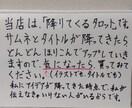 当店は、「降りてくるタロット」で
サムネとタイトルが降ってきたら
どんどん ほりこんでアップしていき
ますので、気になったら、買ってお
てください。(イラストでも、タイトルでも)
私にアイデアが降ってきた時点で、私が
伝えなきゃいけない人がいるからです